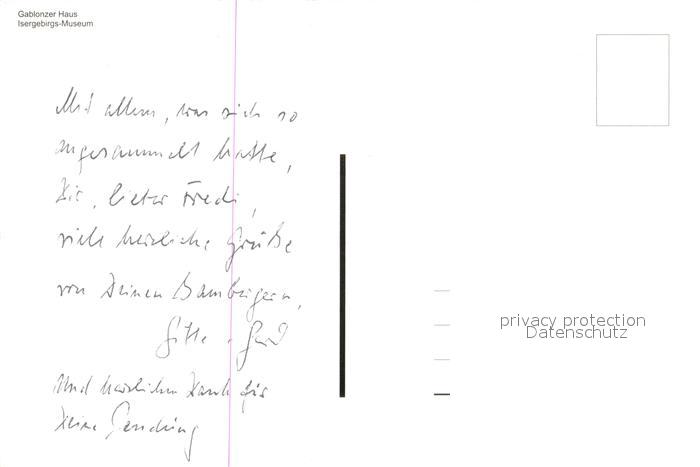 Gablonzer Haus
Isergebirgs-Museum
Mit allem, was sich so
angesammelt hatte,
Dir, lieber Fredi,
viele herzliche Grüße
von Deinen Bambergern,
Gitte + Gerd
Und herzlichen Dank für
Deine Sendung
privacy protection
Datenschutz